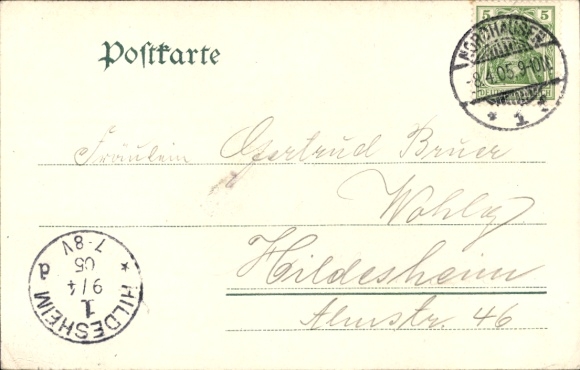 Postkarte
5 5
NORDHAUSEN
-8.4.05.9-10N.
* 1 *
Fräulein Gertrud Bruer
Wohlg
Hildesheim
Almstr. 46
* HILDESHEIM d
1
9/4
05
7-8V